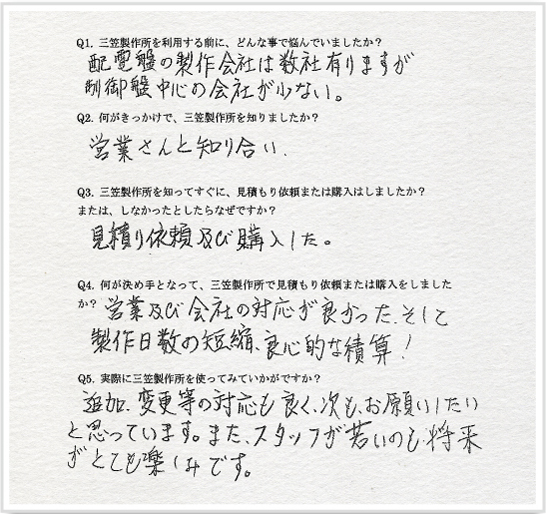 Q1. 三笠製作所を利用する前に、どんな事で悩んでいましたか？
配電盤の製作会社は数社有りますが
制御盤中心の会社が少ない。
Q2. 何がきっかけで、三笠製作所を知りましたか？
営業さんと知り合い、
Q3. 三笠製作所を知ってすぐに、見積もり依頼または購入はしましたか？
または、しなかったとしたらなぜですか？
見積り依頼及び購入した。
Q4. 何が決め手となって、三笠製作所で見積もり依頼または購入をしました
か？ 営業及び会社の対応が良かった、そして
製作日数の短縮、良心的な積算！
Q5. 実際に三笠製作所を使ってみていかがですか？
追加、変更等の対応も良く、次も、お願いしたい
と思っています。また、スタッフが若いのも、将来
がとても楽しみです。